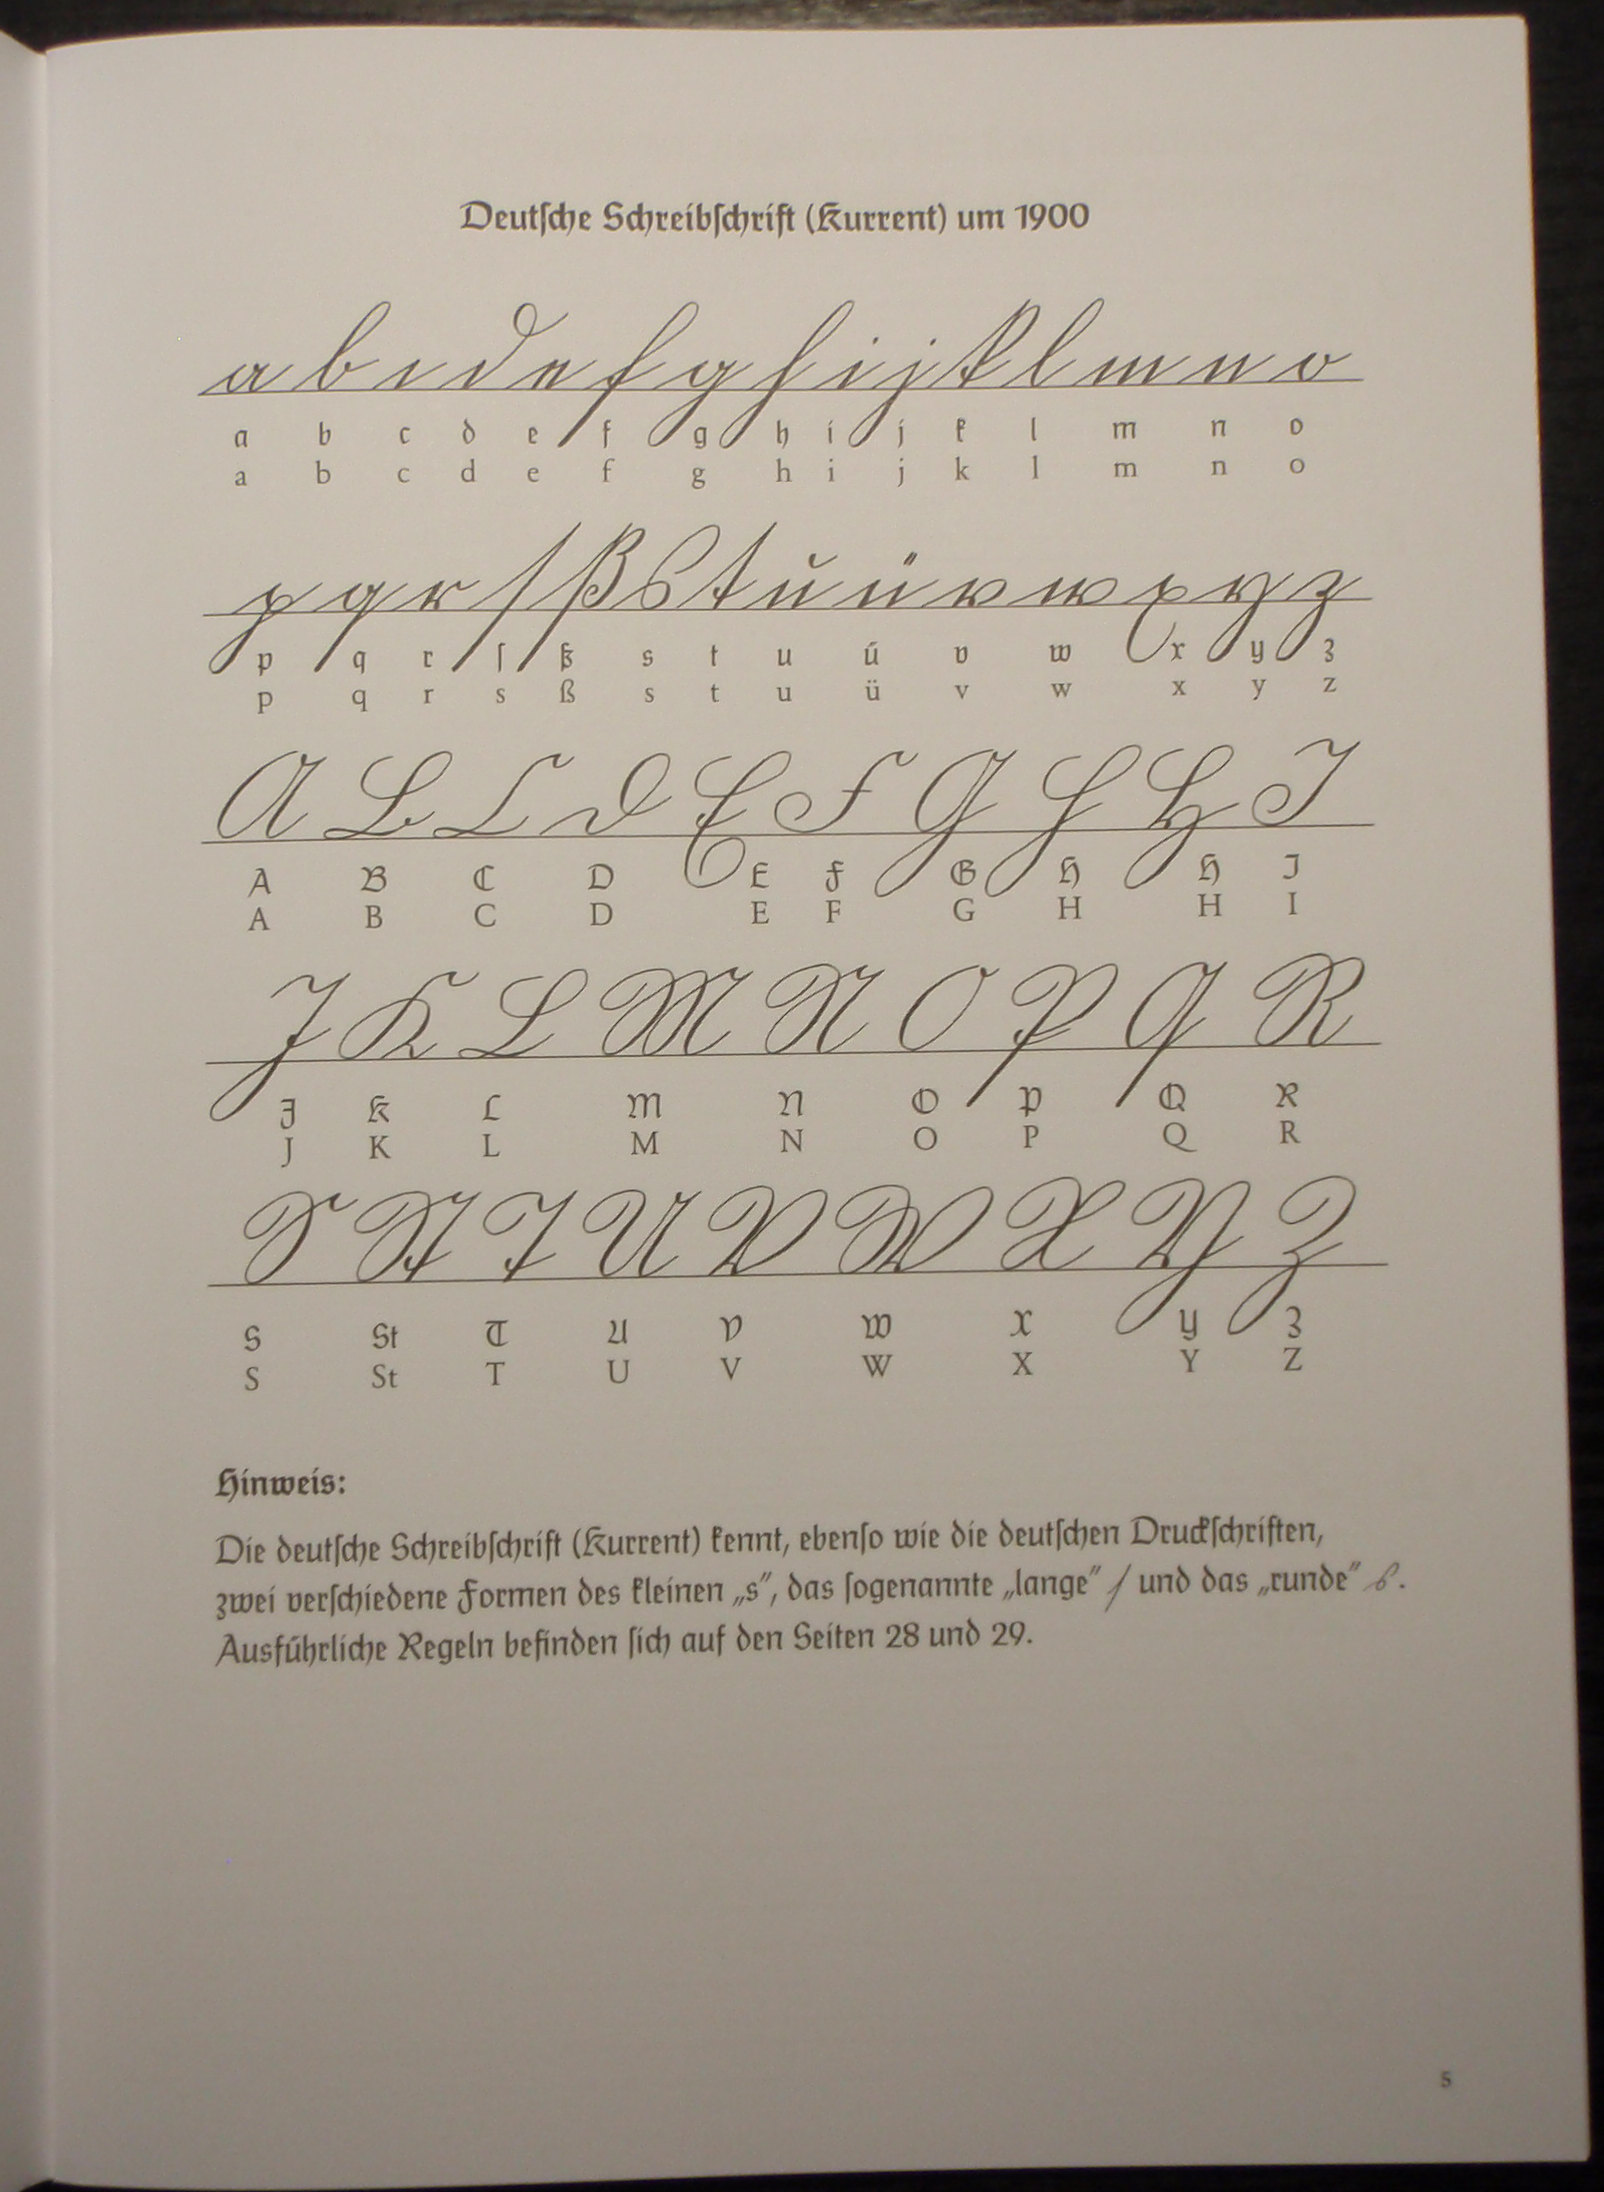 Deutſche Schreibſchrift (Kurrent) um 1900
a b c d e f g h i j k l m n o
a b c d e f g h i j k l m n o
a b c d e f g h i j k l m n o
p q r ſ ß s t u ü v w x y z
p q r ſ ß s t u ü v w x y z
p q r s ß s t u ü v w x y z
A B C D E F G H H I
A B C D E F G H H I
A B C D E F G H H I
J K L M N O P Q R
J K L M N O P Q R
J K L M N O P Q R
S St T U V W X Y Z
S St T U V W X Y Z
S St T U V W X Y Z
Hinweis:
Die deutſche Schreibſchrift (Kurrent) kennt, ebenſo wie die deutſchen Druckſchriften,
zwei verſchiedene Formen des kleinen „s“, das ſogenannte „lange“ ſ und das „runde“ s.
Ausführliche Regeln befinden ſich auf den Seiten 28 und 29.
5